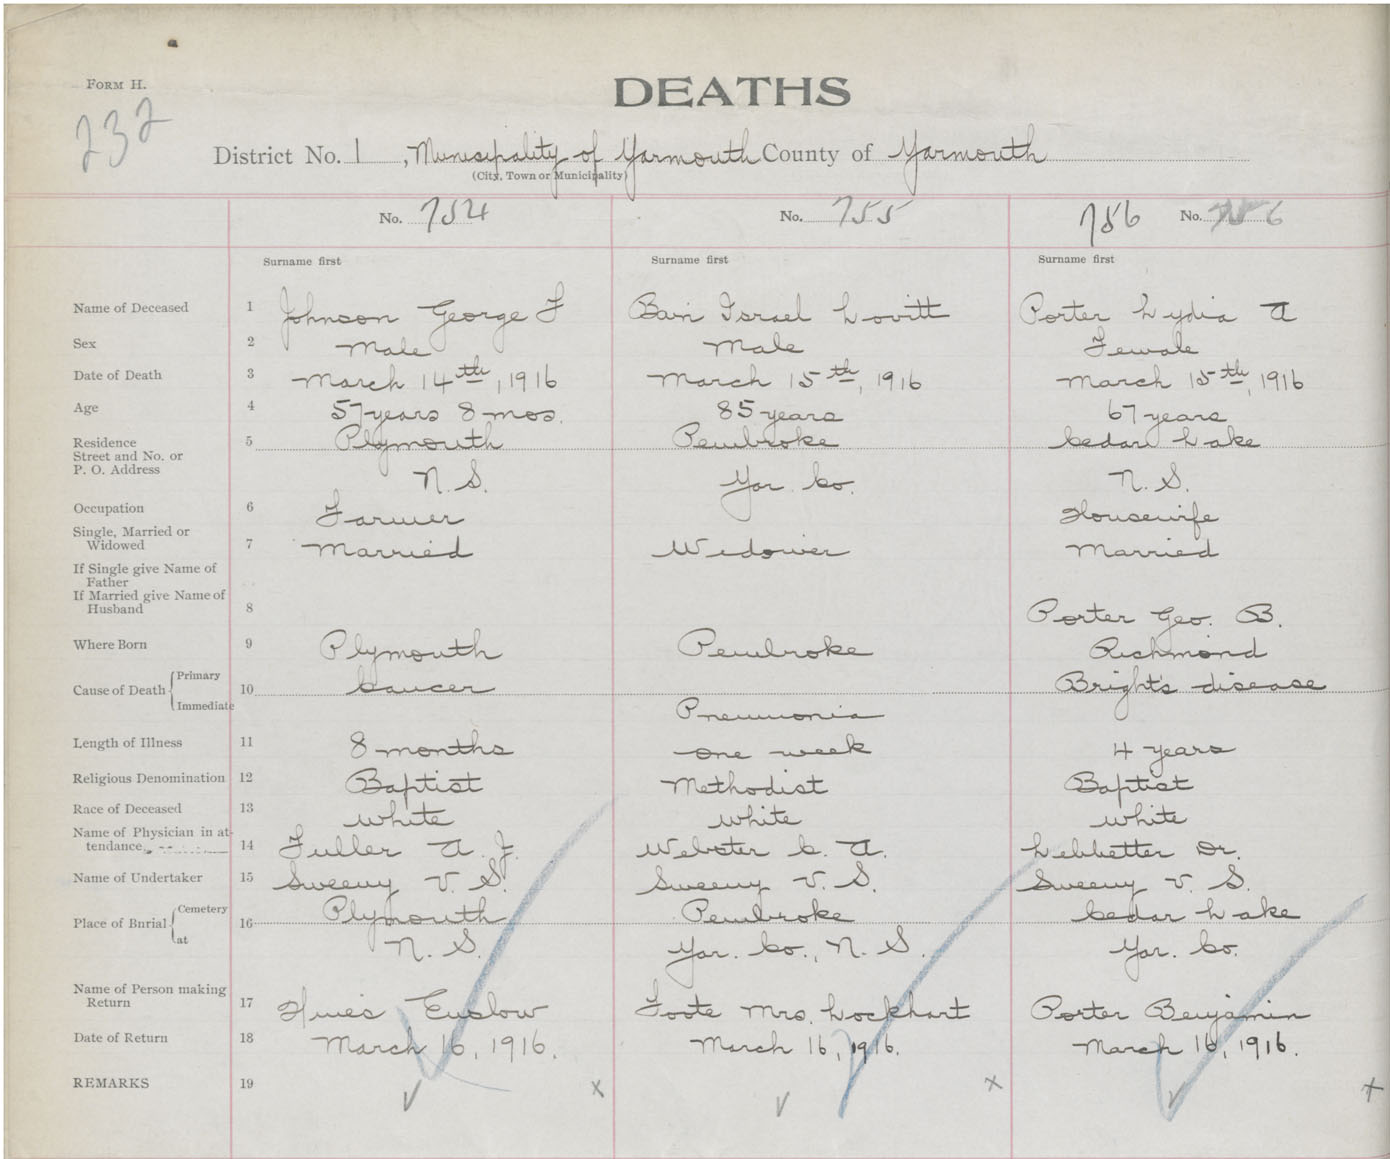 FORM H.
DEATHS
232
District No. 1, Municipality of Yarmouth County of Yarmouth
(City, Town or Municipality)
No. 754 No. 755 756 No. 756
Surname first Surname first Surname first
Name of Deceased 1 Johnson George F Bain Israel Lovitt Porter Lydia A
Sex 2 Male Male Female
Date of Death 3 March 14th, 1916 March 15th, 1916 March 15th, 1916
Age 4 57 years 8 mos. 85 years 67 years
Residence 5 Plymouth Pembroke Cedar Lake
Street and No. or
P. O. Address N. S. Yar. Co. N. S.
Occupation 6 Farmer Housewife
Single, Married or
Widowed 7 Married Widower Married
If Single give Name of
Father
If Married give Name of
Husband 8 Porter Geo. B.
Where Born 9 Plymouth Pembroke Richmond
Cause of Death Primary 10 Cancer Bright's disease
Immediate Pneumonia
Length of Illness 11 8 months one week 4 years
Religious Denomination 12 Baptist Methodist Baptist
Race of Deceased 13 white white white
Name of Physician in at-
tendance 14 Fuller A. J. Webster C. A. Lebbetter Dr.
Name of Undertaker 15 Sweeny V. S. Sweeny V. S. Sweeny V. S.
Place of Burial Cemetery 16 Plymouth Pembroke Cedar Lake
at N. S. Yar. Co., N. S. Yar. Co.
Name of Person making
Return 17 Hines Enslow Foote Mrs. Lockhart Porter Benjamin
Date of Return 18 March 16, 1916. March 16, 1916. March 16, 1916.
REMARKS 19 ✓ x ✓ x ✓ x